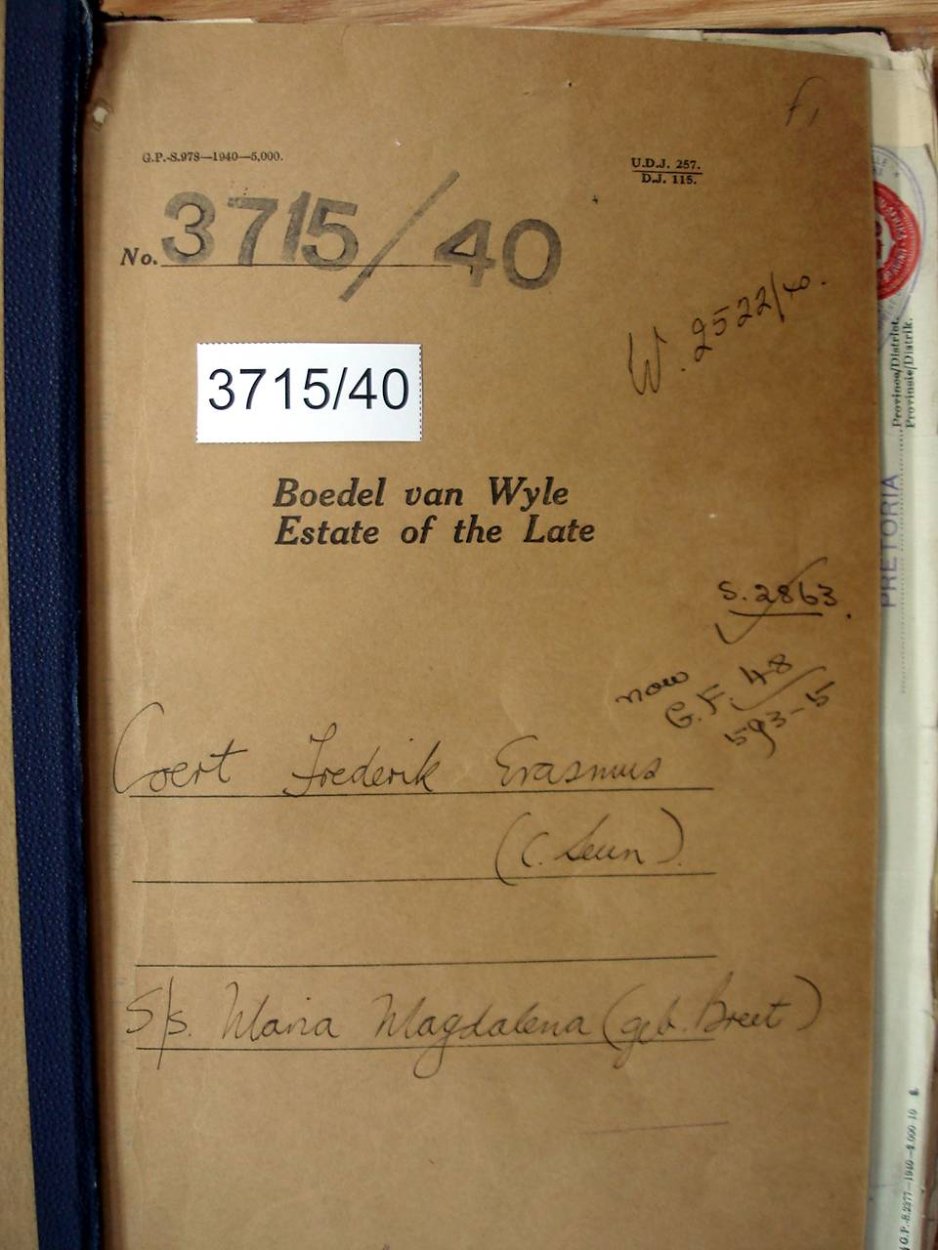 f1
G.P.-S.978—1940—5,000.
U.D.J. 257.
D.J. 115.
No. 3715/40
W. 2522/40.
3715/40
Boedel van Wyle
Estate of the Late
S. 2863.
now
G.F. 48
593-5
Coert Frederik Erasmus
(C. Seun).
S/s. Maria Magdalena (geb. Breet)
Province/District.
Provinsie/Distrik.
PRETORIA
G.P.-S.2377—1940—4,000 10